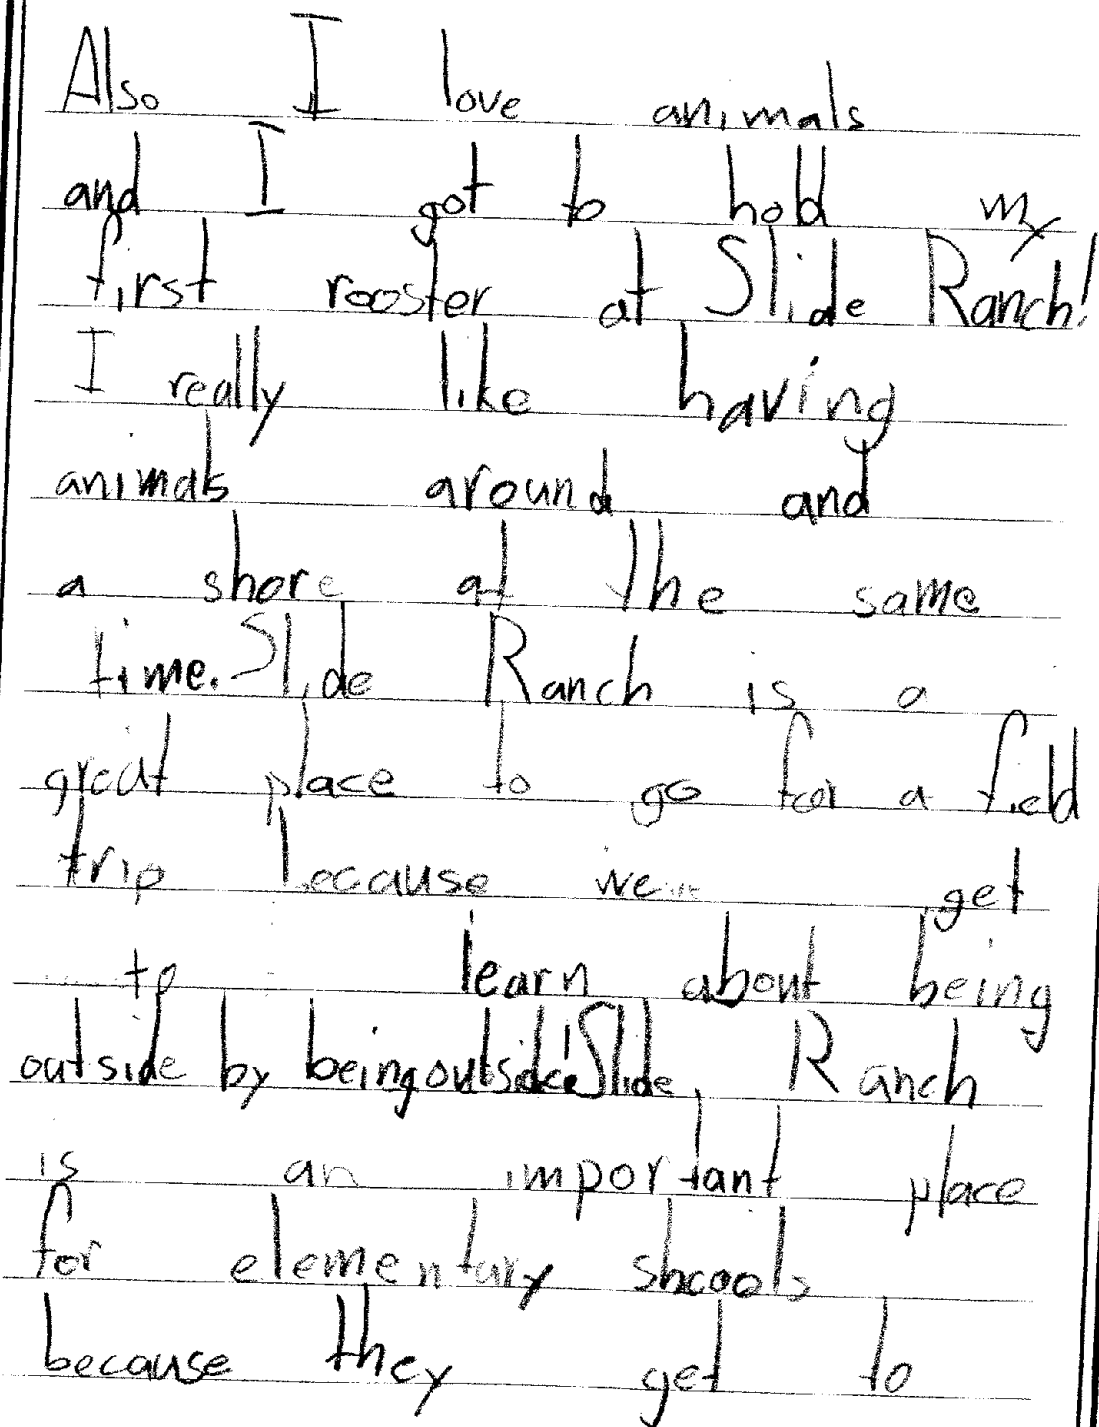 Also I love animals
and I got to hold my
first rooster at Slide Ranch!
I really like having
animals around and
a shore at the same
time. Slide Ranch is a
great place to go for a field
trip because we get
to learn about being
outside by being outside! Slide Ranch
is an important place
for elementary shcools
because they get to